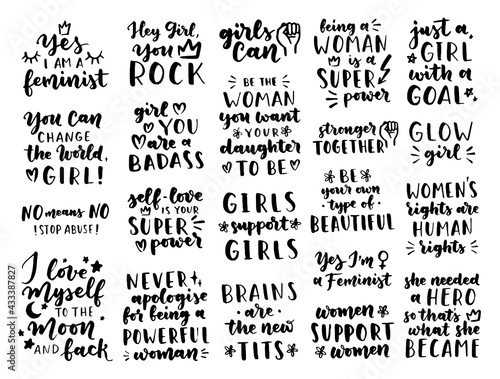 Yes
I AM A
feminist
You can
CHANGE
the World,
GIRL!
NO means NO
! STOP ABUSE!
I love
myself
TO THE
Moon
AND back
Hey Girl,
You
ROCK
girl
YOU
are a
BADASS
self-love
IS YOUR
SUPER
power
NEVER
apologise
for being a
POWERFUL
woman
girls
CAN
BE THE
WOMAN
you want
YOUR
daughter
TO BE
GIRLS
support
GIRLS
BRAINS
are
the new
TITS
being a
WOMAN
is a
SUPER
power
stronger
TOGETHER
BE
your own
type of
BEAUTIFUL
Yes I'm
a Feminist
women
SUPPORT
women
just a
GIRL
with a
GOAL
GLOW
girl
WOMEN'S
rights are
HUMAN
rights
she needed
a HERO
so that's
what she
BECAME
Adobe Stock | #433387827